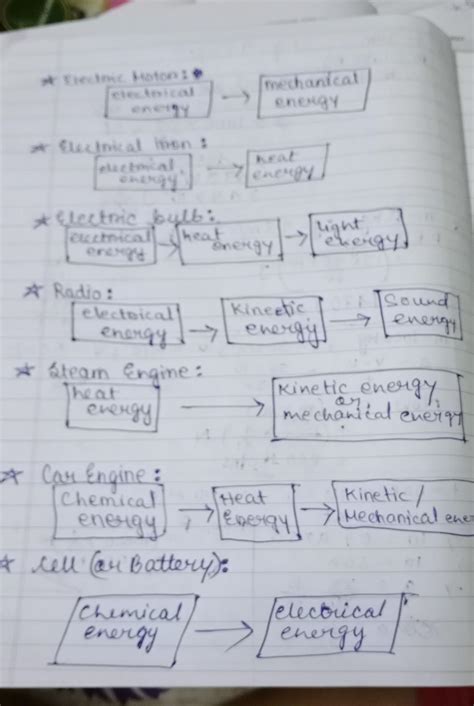 ☆ Electric Motor:
electrical energy → mechanical energy
☆ Electrical Iron:
electrical energy → heat energy
☆ Electric bulb:
electrical energy → heat energy → light energy
☆ Radio:
electrical energy → Kineetic energy → Sound energy
☆ Steam Engine:
heat energy → Kinetic energy or mechanical energy
☆ Car Engine:
Chemical energy → Heat Energy → Kinetic / Mechanical ene
☆ Cell (or Battery):
Chemical energy → electrical energy